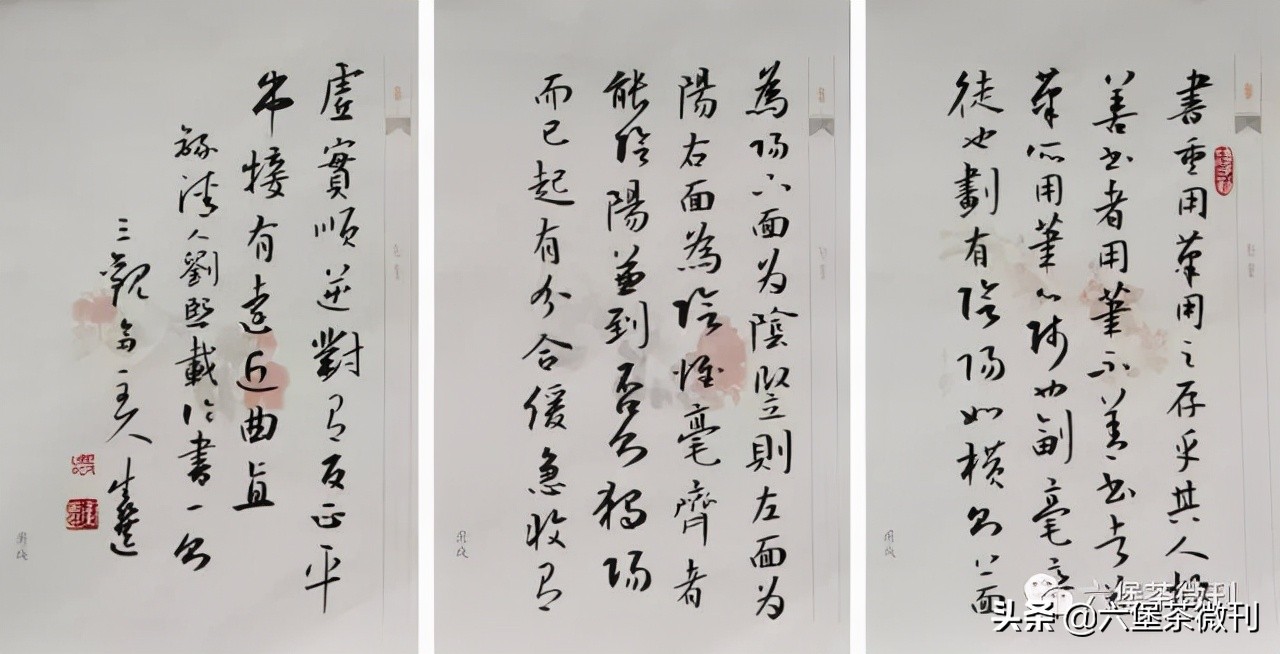 書重用筆用之存乎其人故
善書者用筆不善書者為
筆所用筆心帥也副毫卒
徒也劃有陰陽如橫則上面
為陽下面為陰豎則左面為
陽右面為陰惟毫齊者
能陰陽兼到否則獨陽
而已起有分合緩急收有
虛實順逆對有反正平
串接有遠近曲直
錄清人劉熙載論書一則
三觀齋主人
六堡茶微刊
头条 @六堡茶微刊